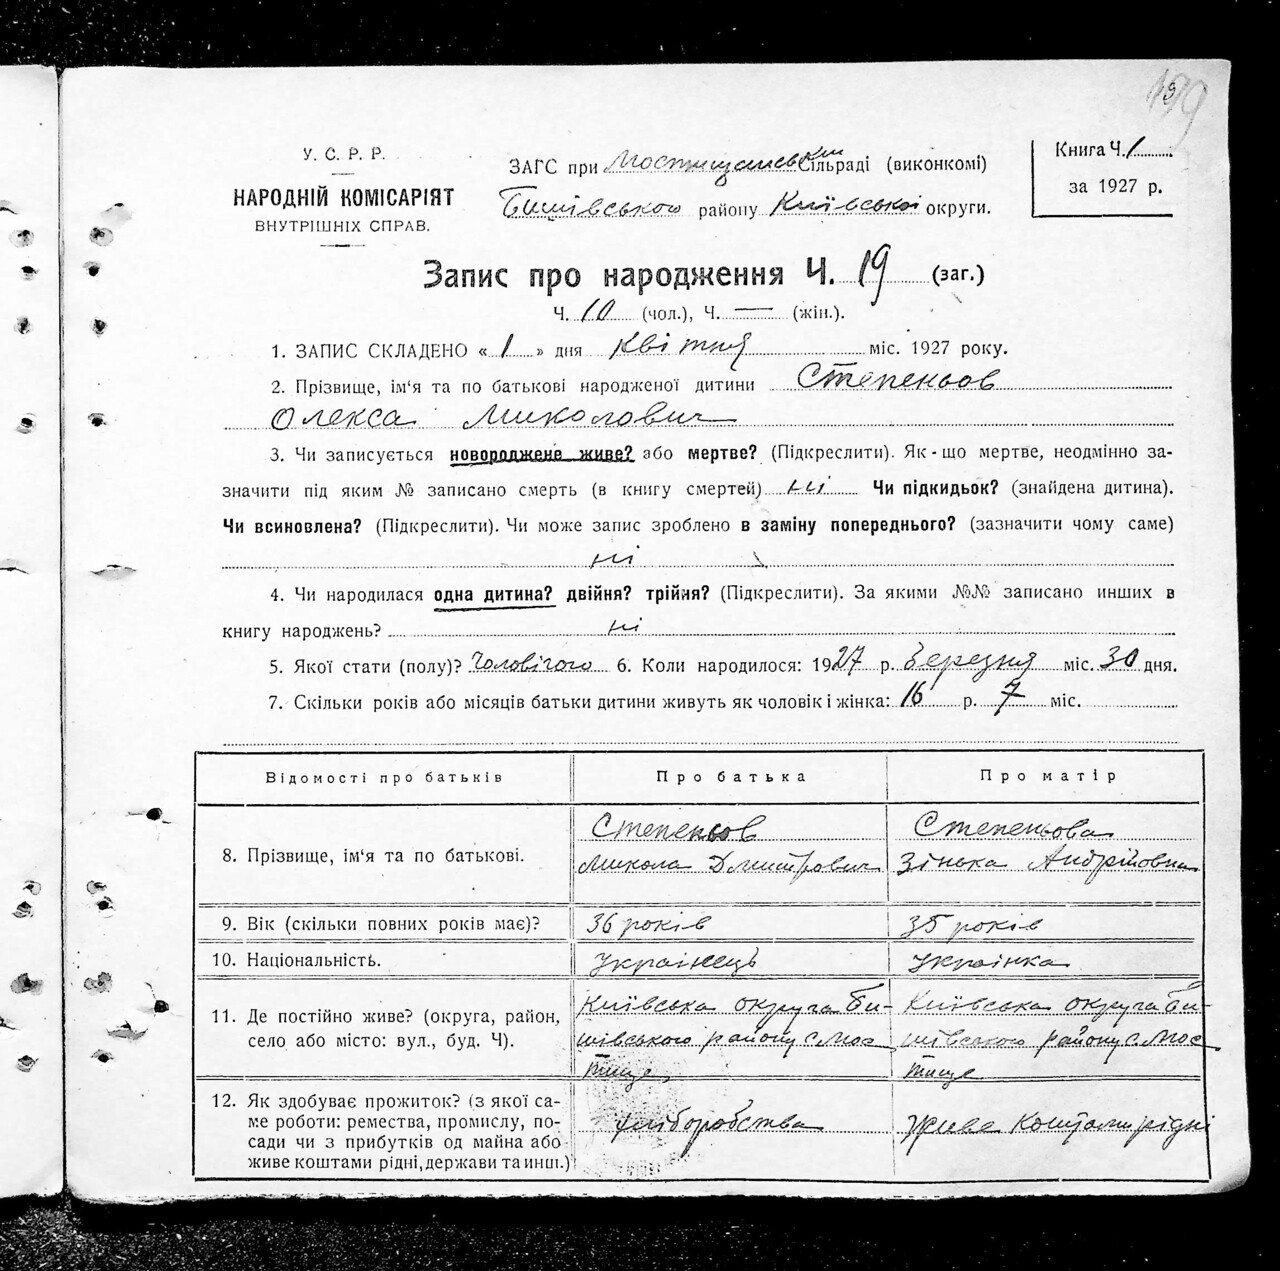 199
У. С. Р. Р.
НАРОДНІЙ КОМІСАРІЯТ
ВНУТРІШНІХ СПРАВ.
ЗАГС при Мостищанській Сільраді (виконкомі)
Бишівського району Київської округи.
Книга Ч. 1
за 1927 р.
Запис про народження Ч. 19 (заг.)
Ч. 10 (чол.), Ч. — (жін.).
1. ЗАПИС СКЛАДЕНО « 1 » дня квітня міс. 1927 року.
2. Прізвище, ім'я та по батькові народженої дитини Степеньов
Олекса Миколович
3. Чи записується новороджене живе? або мертве? (Підкреслити). Як-що мертве, неодмінно за-
значити під яким № записано смерть (в книгу смертей) ні Чи підкидьок? (знайдена дитина).
Чи всиновлена? (Підкреслити). Чи може запис зроблено в заміну попереднього? (зазначити чому саме)
ні
4. Чи народилася одна дитина? двійня? трійня? (Підкреслити). За якими №№ записано инших в
книгу народжень? ні
5. Якої стати (полу)? Чоловічого 6. Коли народилося: 1927 р. Березня міс. 30 дня.
7. Скільки років або місяців батьки дитини живуть як чоловік і жінка: 16 р. 7 міс.
Відомості про батьків Про батька Про матір
8. Прізвище, ім'я та по батькові. Степеньов Микола Дмитрович Степеньова Зінька Андрійовна
9. Вік (скільки повних років має)? 36 років 35 років
10. Національність. Українець Українка
11. Де постійно живе? (округа, район, село або місто: вул., буд. Ч). Київська округа Би-шівського району с. Мостище, Київська округа Би-шівського району с. Мостище
12. Як здобуває прожиток? (з якої са-
ме роботи: ремества, промислу, по-
сади чи з прибутків од майна або
живе коштами рідні, держави та инш.) хліборобства Живе Коштами рідні